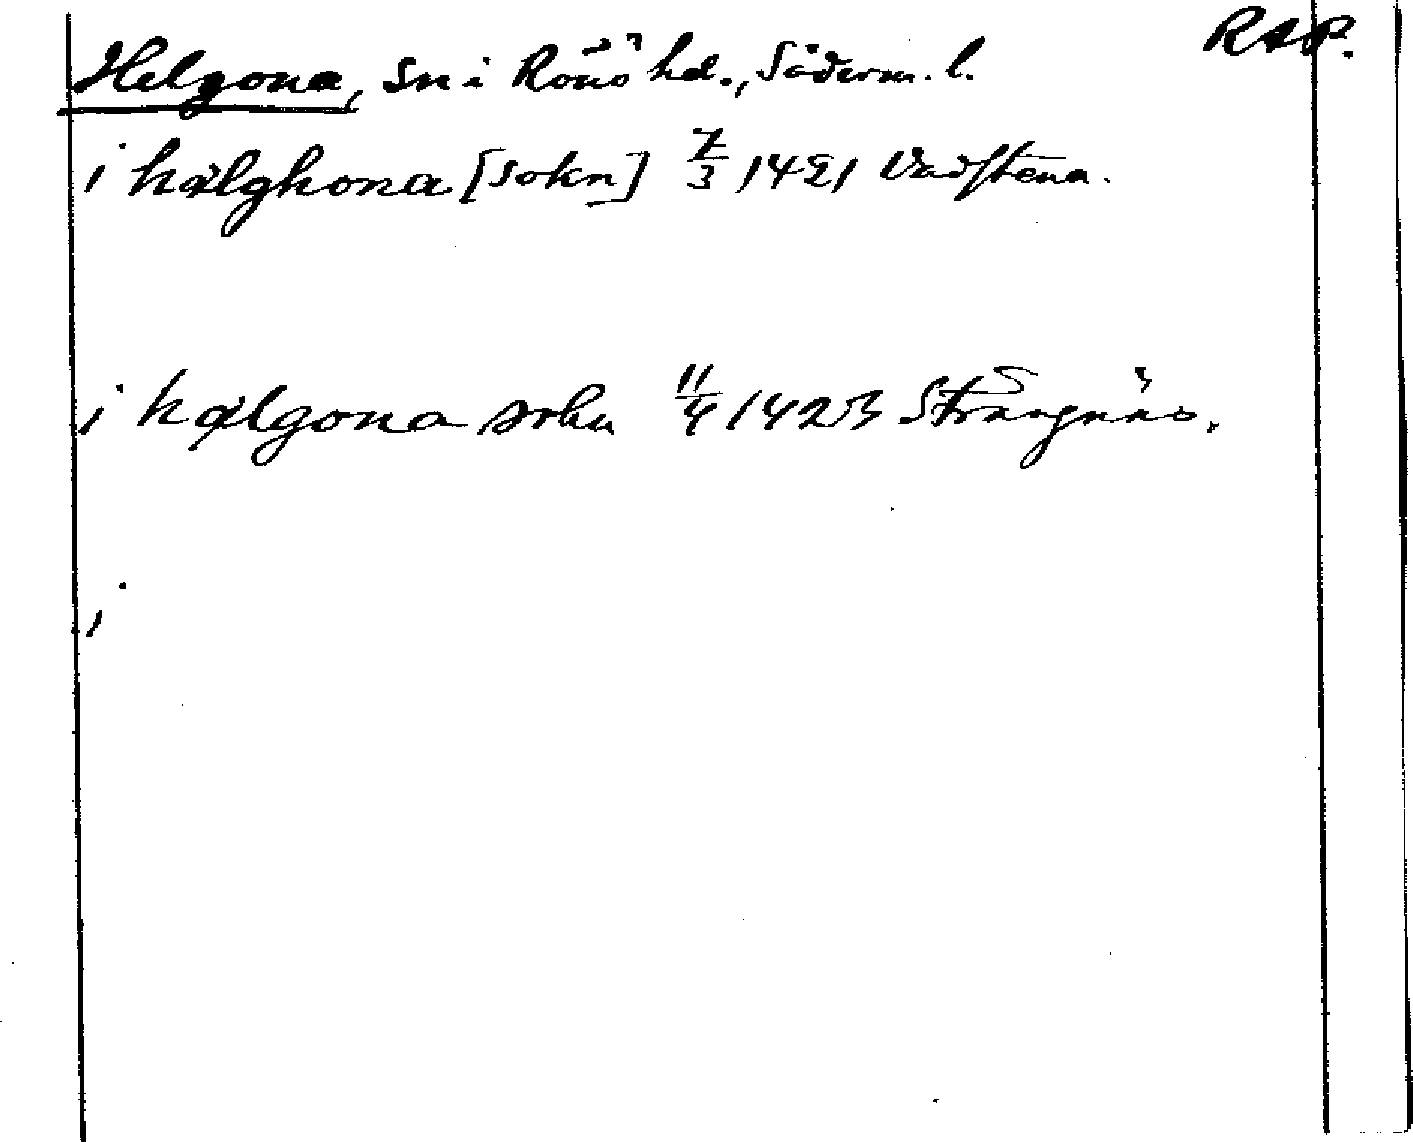 Helgona, Sn i Rönö hd., Söderm. l. RAP.
i hælghona [sokn] 7/3 1421 Vadstena.
i hælgona sokn 11/4 1423 Strängnäs.
i